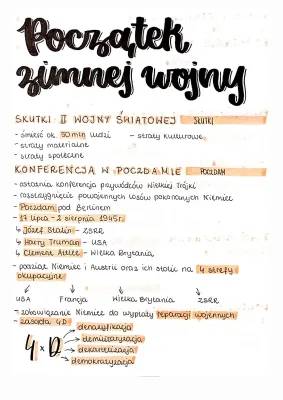 Początek
zimnej wojny
SKUTKI II WOJNY ŚWIATOWEJ SKUTKI
- śmierć ok. 50 mln ludzi - straty kulturowe
- straty materialne
- straty społeczne
KONFERENCJA W POCZDAMIE POCZDAM
- ostatnia konferencja przywódców Wielkiej Trójki
- rozstrzygnięcie powojennych losów pokonanych Niemiec
- Poczdam pod Berlinem
- 17 lipca - 2 sierpnia 1945r.
↳ Józef Stalin - ZSRR
↳ Harry Truman - USA
↳ Clement Attlee - Wielka Brytania
- podział Niemiec i Austrii oraz ich stolic na 4 strefy
okupacyjne
USA Francja Wielka Brytania ZSRR
- zobowiązanie Niemiec do wypłaty reparacji wojennych
- zasada 4D
4 x D
denazyfikacja
demilitaryzacja
dekartelizacja
demokratyzacja